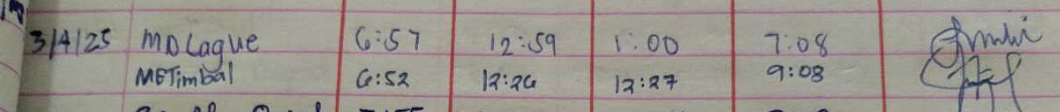 3/4/25 MDLague 6:57 12:59 1:00 7:08
METimbal 6:52 12:26 12:27 9:08